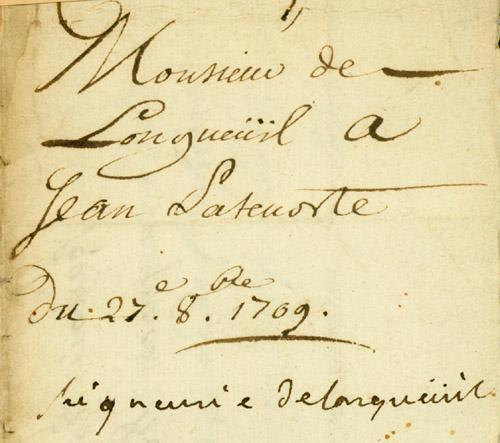 Monsieur de
Longueüil a
Jean Latenorte
Du. 27.e 8.bre 1709.
Seigneurie delongueüil